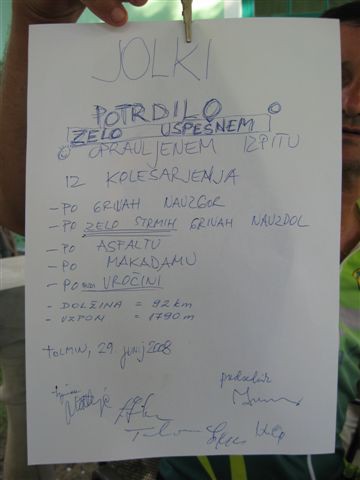 JOLKI
POTRDILO O
ZELO USPEŠNEM
OPRAVLJENEM IZPITU
IZ KOLEŠARJENJA
- PO GRIVAH NAVZGOR
- PO ZELO STRMIH GRIVAH NAVZDOL
- PO ASFALTU
- PO MAKADAMU
- PO VROČINI
- DOLŽINA = 92 km
- VZPON = 1790 m
TOLMIN, 29. junij 2008
predsednik